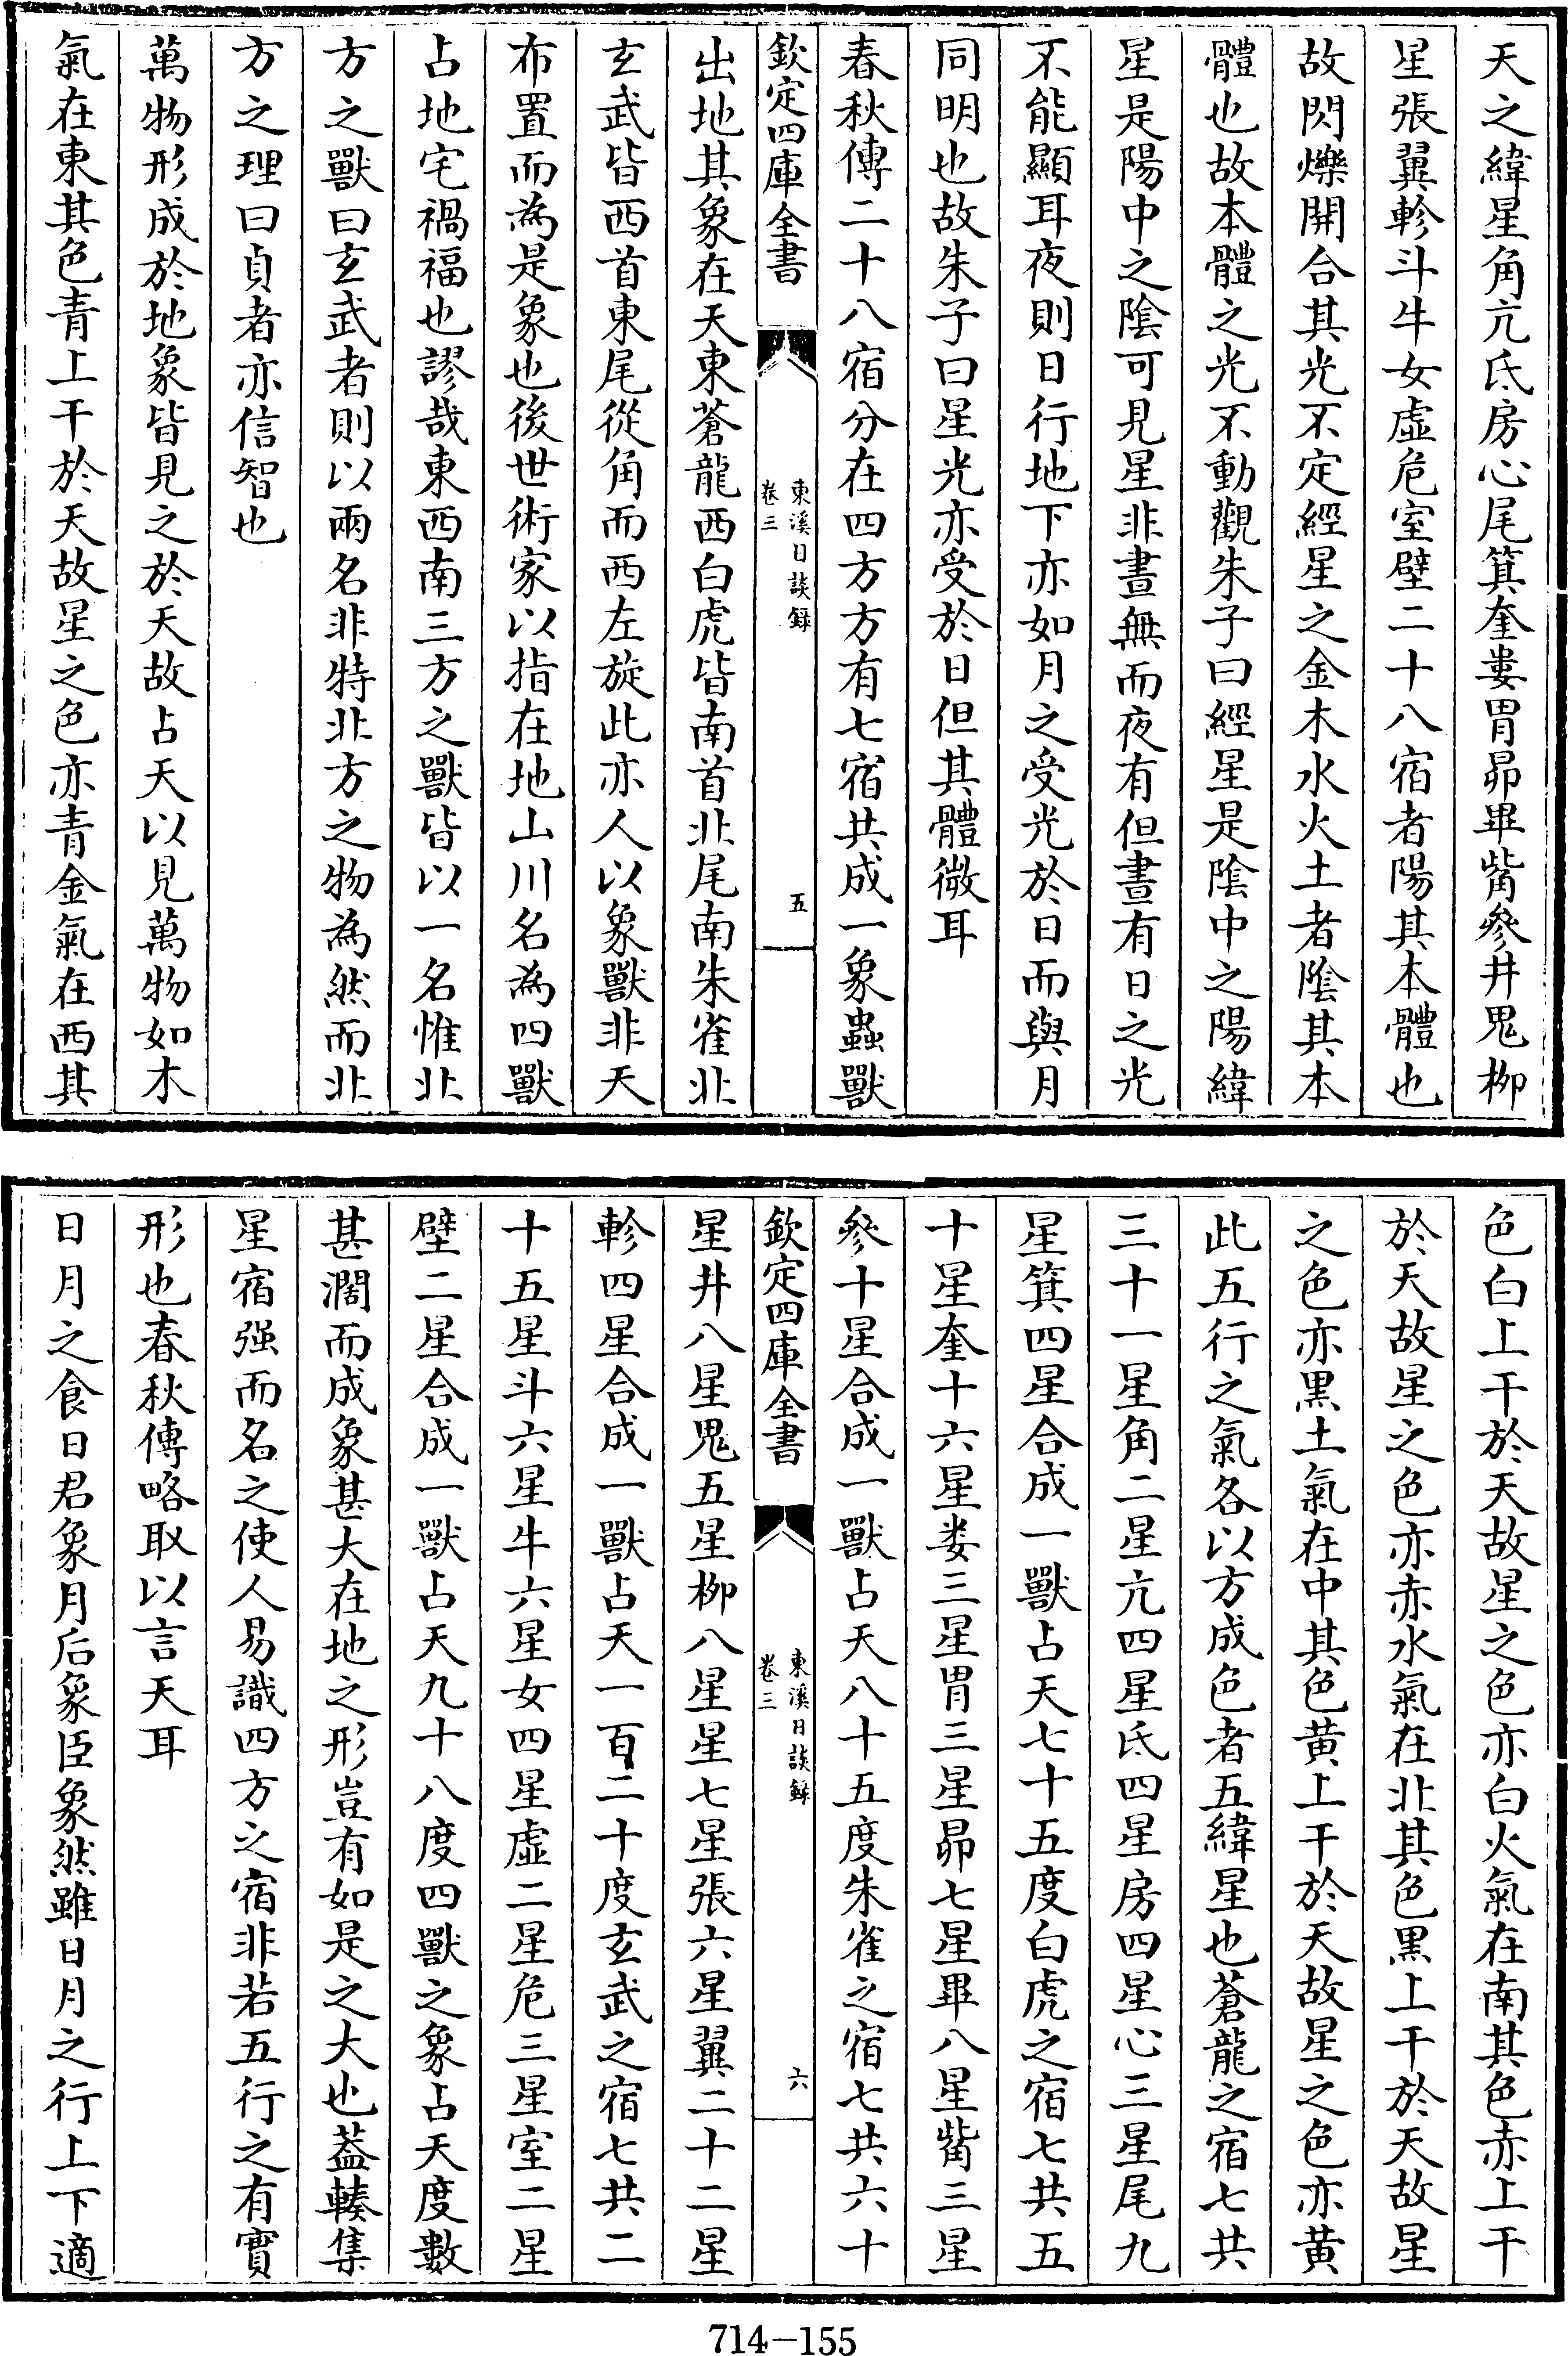 天之緯星角亢氐房心尾箕奎婁胃昴畢觜參井鬼柳
星張翼軫斗牛女虛危室壁二十八宿者陽其本體也
故閃爍開合其光不定經星之金木水火土者陰其本
體也故本體之光不動觀朱子曰經星是陰中之陽緯
星是陽中之陰可見星非晝無而夜有但晝有日之光
不能顯耳夜則日行地下亦如月之受光於日而與月
同明也故朱子曰星光亦受於日但其體微耳
春秋傳二十八宿分在四方方有七宿共成一象蟲獸
欽定四庫全書
東溪日談錄
卷三
五
出地其象在天東蒼龍西白虎皆南首北尾南朱雀北
玄武皆西首東尾從角而西左旋此亦人以象獸非天
布置而為是象也後世術家以指在地山川名為四獸
占地宅禍福也謬哉東西南三方之獸皆以一名惟北
方之獸曰玄武者則以兩名非特北方之物為然而北
方之理曰貞者亦信智也
萬物形成於地象皆見之於天故占天以見萬物如木
氣在東其色青上干於天故星之色亦青金氣在西其
色白上干於天故星之色亦白火氣在南其色赤上干
於天故星之色亦赤水氣在北其色黑上干於天故星
之色亦黑土氣在中其色黄上干於天故星之色亦黄
此五行之氣各以方成色者五緯星也蒼龍之宿七共
三十一星角二星亢四星氐四星房四星心三星尾九
星箕四星合成一獸占天七十五度白虎之宿七共五
十星奎十六星娄三星胃三星昴七星畢八星觜三星
參十星合成一獸占天八十五度朱雀之宿七共六十
欽定四庫全書
東溪日談錄
卷三
六
星井八星鬼五星柳八星星七星張六星翼二十二星
軫四星合成一獸占天一百二十度玄武之宿七共二
十五星斗六星牛六星女四星虛二星危三星室二星
壁二星合成一獸占天九十八度四獸之象占天度數
甚濶而成象甚大在地之形豈有如是之大也葢輳集
星宿强而名之使人易識四方之宿非若五行之有實
形也春秋傳略取以言天耳
日月之食日君象月后象臣象然雖日月之行上下適
714-155